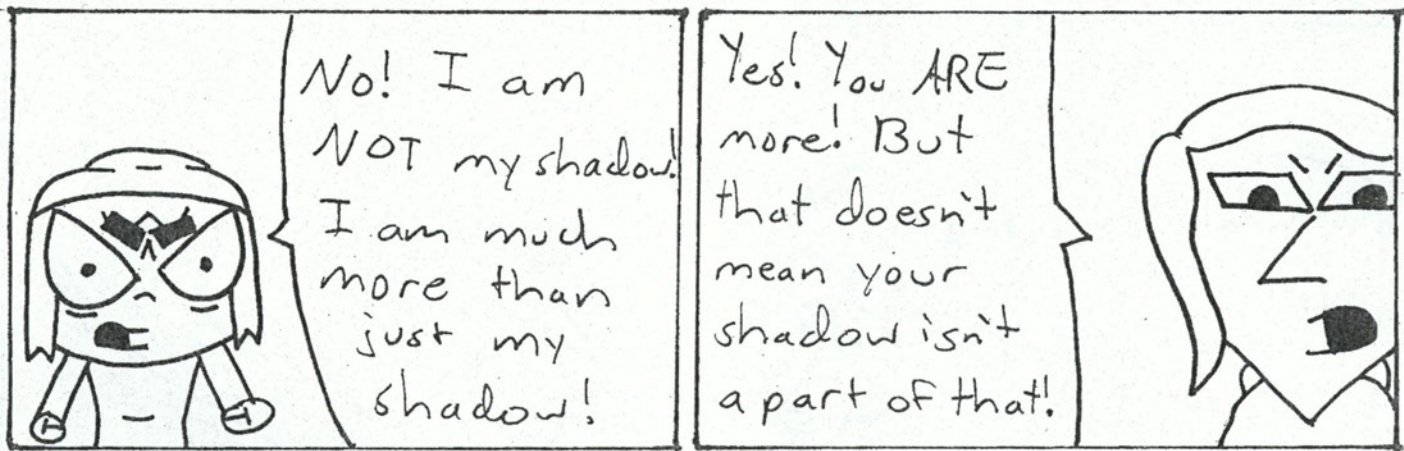 No! I am
NOT my shadow!
I am much
more than
just my
shadow!
Yes! You ARE
more! But
that doesn't
mean your
shadow isn't
a part of that!